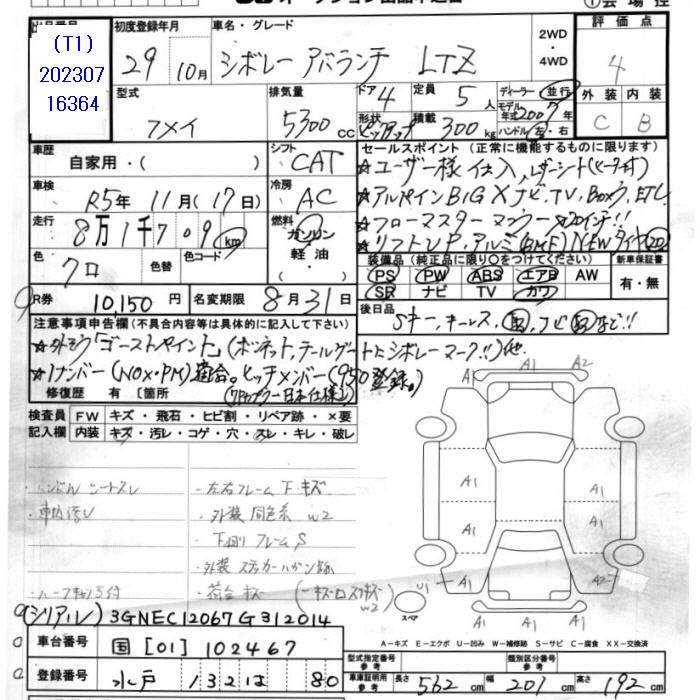 (T1)
202307
16364
初度登録年月
29 10月
車名・グレード
シボレー アバランチ LTZ
2WD
・
4WD
評価点
4
型式
フメイ
排気量
5300cc
ドア 4
形状 ピックアップ
定員 5人
積載 300kg
ディーラー・並行
モデル年式 2007年
ハンドル 左・右
外装 内装
C B
車歴
自家用・( )
シフト
CAT
車検
R5年 11月(17日)
冷房
AC
走行
8万1千709km
燃料
ガソリン
軽油
・( )
色
クロ
色替
色コード
セールスポイント(正常に機能するものに限ります)
★ユーザー様仕入、レザーシート(ヒーター付)
★アルパインBIGXナビ、TV、Boxウ、ETC
★フローマスターマフラー ★20インチ!!
★リフトUP、アルミ(BMF)NEWタイヤ(20)
装備品(純正品に限り〇をつけてください)
PS PW ABS エアB AW
SR ナビ TV カワ
新車保証書
有・無
R券 10,150円
名変期限 8月31日
後日品
Sキー、キーレス、
注意事項申告欄(不具合内容等は具体的に記入して下さい)
★外そう「ゴーストペイント」(ボンネット、テールゲートにシボレーマーク!!)他
★1ナンバー(NOX・PM)適合。ヒッチメンバー(950登録。)
修復歴 有[箇所
検査員
記入欄
FW キズ・飛石・ヒビ割・リペア跡・×要
内装 キズ・汚レ・コゲ・穴・スレ・キレ・破レ
・ハンドル シートスレ
・車内汚レ
・左右フレーム下キズ
・外装 同色系 W2
・下回リ フレームS
・荷台キズ
A1 A1 A2
A1 A1
A1 A1
A1 A2
U1
スペア
A1 A1 A1
A－キズ E－エクボ U－凹み W－補修跡 S－サビ C－腐食 XX－交換済
(シリアル) 3GNEC12067G312014
車台番号
国[01]102467
登録番号
水戸 132は 80
型式指定番号
参考
類別区分番号
参考
車庫証明用
参考
長さ 562cm 幅 201cm 高さ 192cm